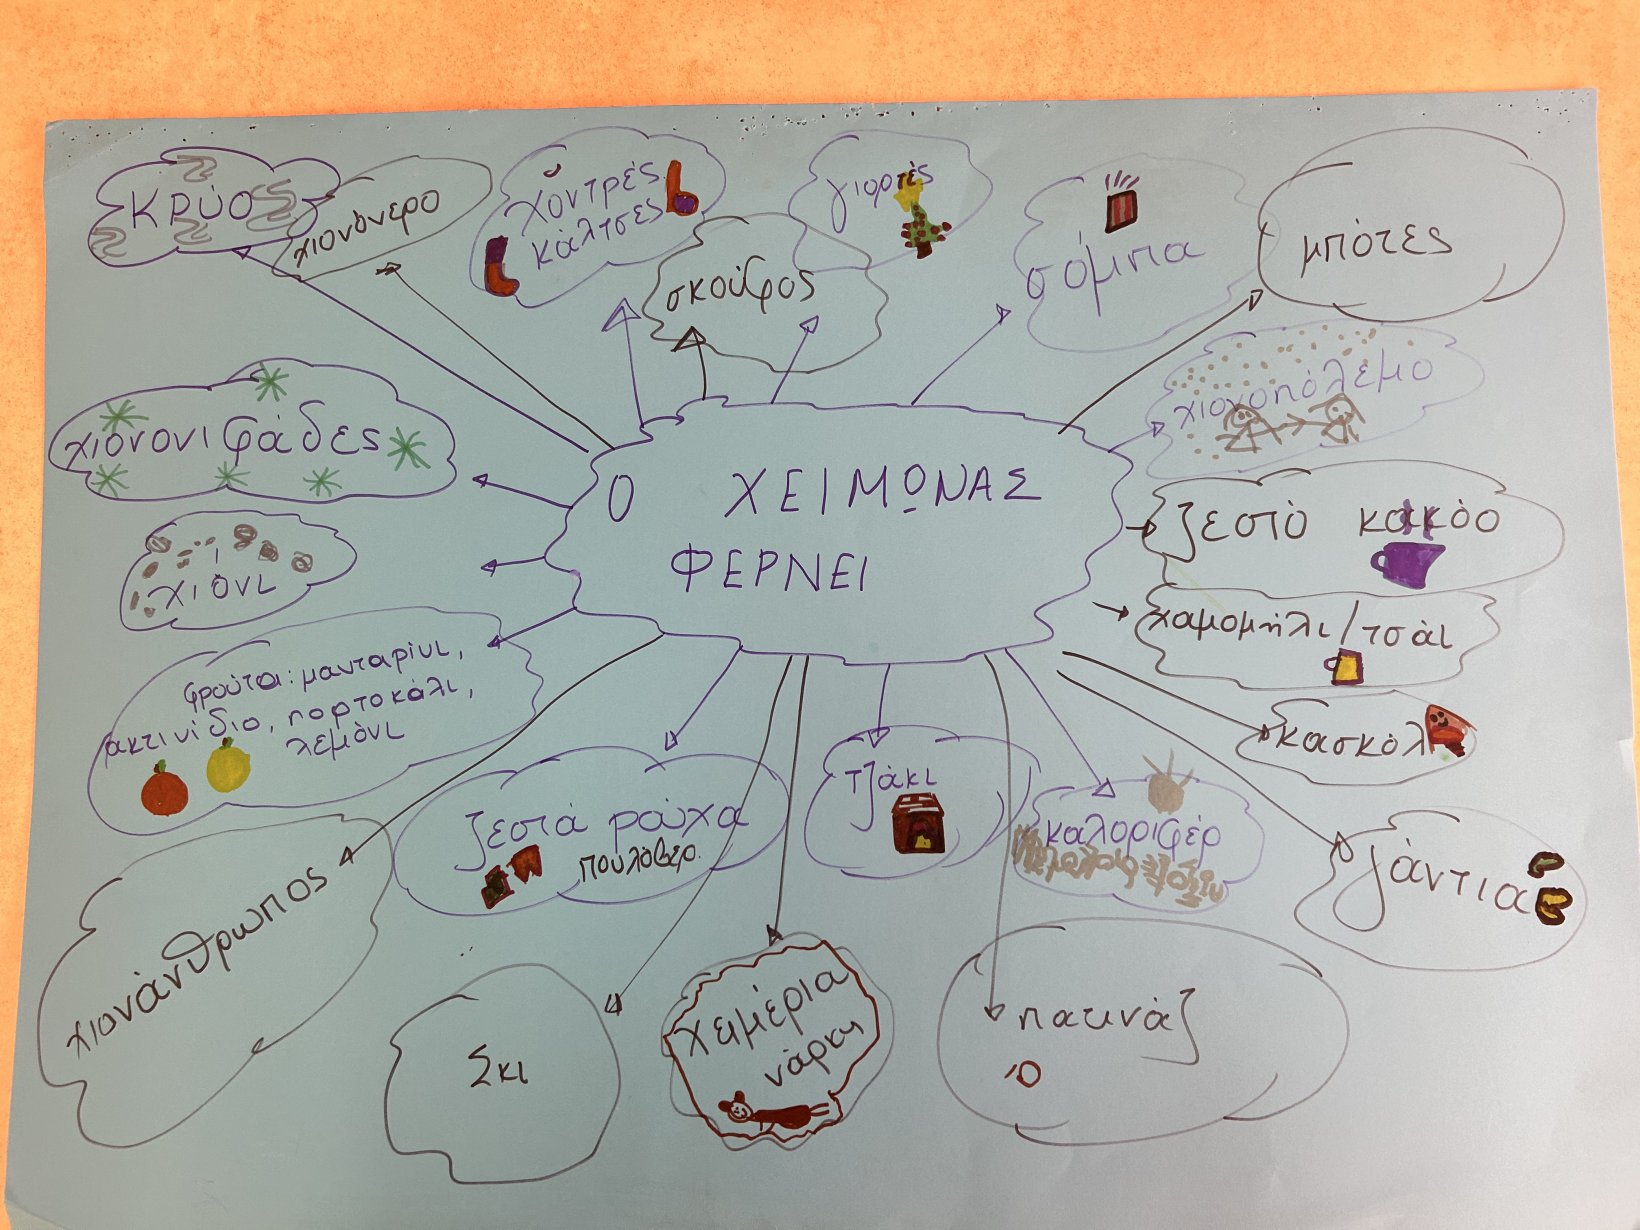 κρύο
χιονόνερο
χοντρές
κάλτσες
σκούφος
γιορτές
σόμπα
μπότες
χιονοπόλεμο
χιονονιφάδες
Ο ΧΕΙΜΩΝΑΣ
ΦΕΡΝΕΙ
ζεστό κακάο
χιόνι
χαμομήλι/τσάι
φρούτα: μανταρίνι,
ακτινίδιο, πορτοκάλι,
λεμόνι
κασκόλ
ζεστά ρούχα
πουλόβερ
τζάκι
καλοριφέρ
γάντια
χιονάνθρωπος
Σκι
χειμέρια
νάρκη
πατινάζ